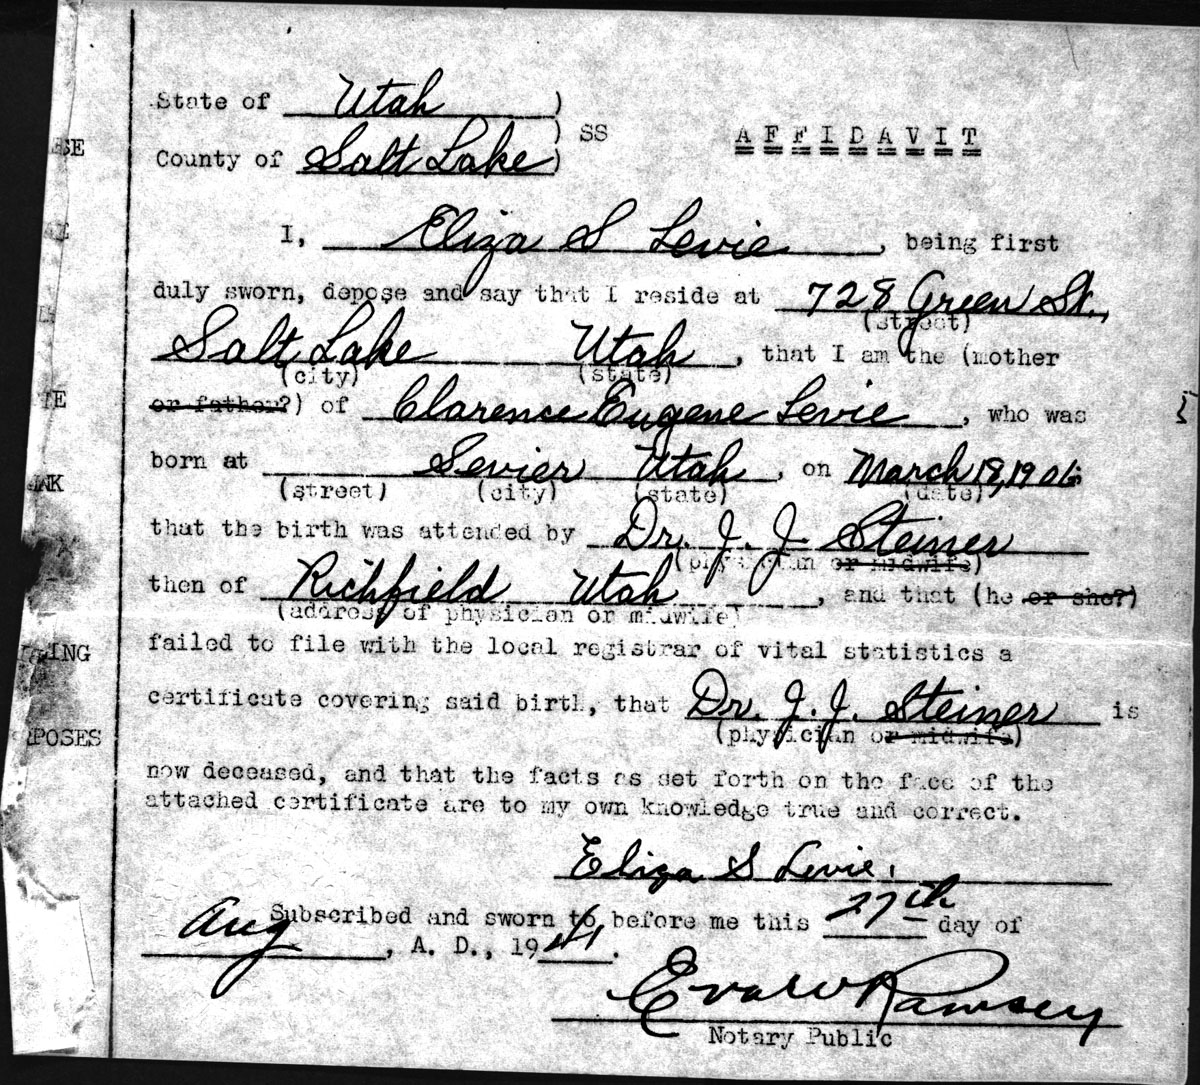 State of Utah )
) SS AFFIDAVIT
County of Salt Lake )
I, Eliza S Levie, being first
duly sworn, depose and say that I reside at 728 Green St.,
(street)
Salt Lake Utah, that I am the (mother
(city) (state)
or father?) of Clarence Eugene Levie, who was
born at Sevier Utah, on March 18, 1906
(street) (city) (state) (date)
that the birth was attended by Dr. J. J. Steiner
(physician or midwife)
then of Richfield Utah, and that (he or she?)
(address of physician or midwife)
failed to file with the local registrar of vital statistics a
certificate covering said birth, that Dr. J. J. Steiner is
(physician or midwife)
now deceased, and that the facts as set forth on the face of the
attached certificate are to my own knowledge true and correct.
Eliza S Levie.
Subscribed and sworn to before me this 27th day of
Aug, A. D., 1941.
Ramsey
Notary Public
POSES